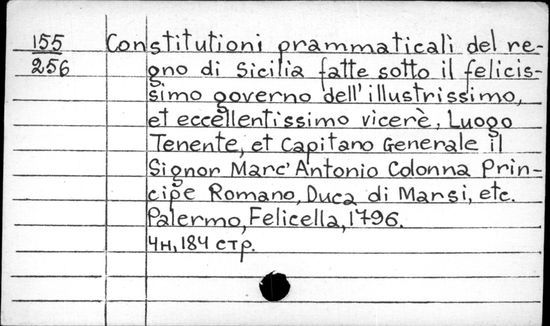 155 Constitutioni prammaticali del re-
256 gno di Sicilia fatte sotto il felicis-
simo governo dell'illustrissimo,
et eccellentissimo vicerè, Luogo
Tenente, et Capitano Generale il
Signor Marc'Antonio Colonna Prin-
cipe Romano, Duca di Marsi, etc.
Palermo, Felicella, 1796.
4н, 184 стр.